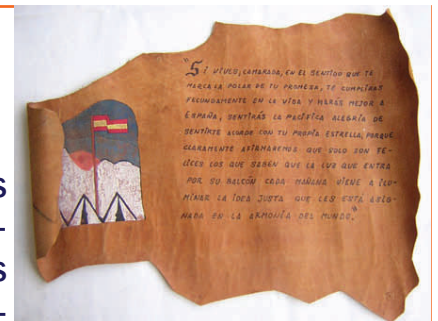 "Si VIVES, CAMARADA, EN EL SENTIDO QUE TE
MARCA LA POLAR DE TU PROMESA, TE CUMPLIRÁS
FECUNDAMENTE EN LA VIDA Y HARÁS MEJOR A
ESPAÑA, SENTIRÁS LA PACÍFICA ALEGRÍA DE
SENTIRTE ACORDE CON TU PROPIA ESTRELLA, PORQUE
CLARAMENTE AFIRMAREMOS QUE SOLO SON FE-
LICES LOS QUE SABEN QUE LA LUZ QUE ENTRA
POR SU BALCÓN CADA MAÑANA VIENE A ILU-
MINAR LA IDEA JUSTA QUE LES ESTÁ
EN LA ARMONÍA DEL MUNDO."
S
-
S
-